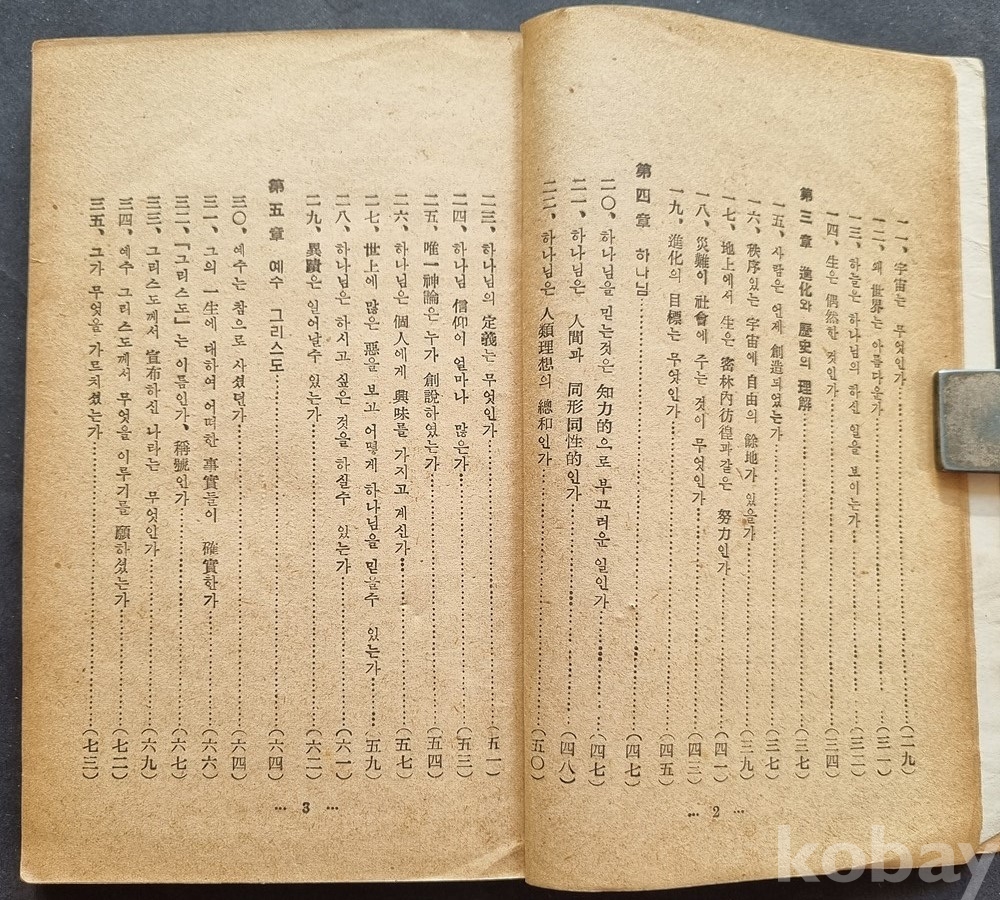 一一、宇宙는 무엇인가……(二九)
一二、왜 世界는 아름다운가……(三一)
一三、하늘은 하나님의 하신 일을 보이는가……(三二)
一四、生은 偶然한 것인가……(三四)
第三章 進化와 歷史의 理解……(三七)
一五、사람은 언제 創造되었는가……(三七)
一六、秩序있는 宇宙에 自由의 餘地가 있을가……(三九)
一七、地上에서 生은 密林內彷徨과같은 努力인가……(四一)
一八、災難이 社會에 주는 것이 무엇인가……(四三)
一九、進化의 目標는 무엇인가……(四五)
第四章 하나님……(四七)
二〇、하나님을 믿는것은 知力的으로 부끄러운 일인가……(四七)
二一、하나님은 人間과 同形同性的인가……(四八)
二二、하나님은 人類理想의 總和인가……(五〇)
… 2 …
二三、하나님의 定義는 무엇인가……(五一)
二四、하나님 信仰이 얼마나 많은가……(五三)
二五、唯一神論은 누가 創說하였는가……(五四)
二六、하나님은 個人에게 興味를 가지고 계신가……(五七)
二七、世上에 많은 惡을 보고 어떻게 하나님을 믿을수 있는가……(五九)
二八、하나님은 하시고 싶은 것을 하실수 있는가……(六一)
二九、異蹟은 일어날수 있는가……(六二)
第五章 예수 그리스도……(六四)
三〇、예수는 참으로 사셨던가……(六四)
三一、그의 一生에 대하여 어떠한 事實들이 確實한가……(六六)
三二、「그리스도」는 이름인가、稱號인가……(六七)
三三、그리스도께서 宣布하신 나라는 무엇인가……(六九)
三四、예수 그리스도께서 무엇을 이루기를 願하셨는가……(七二)
三五、그가 무엇을 가르치셨는가……(七三)
… 3 …
kobay